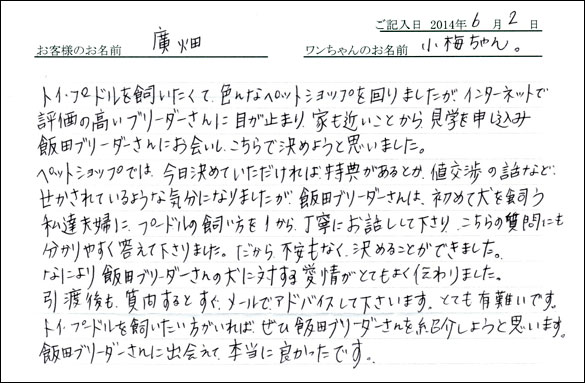 ご記入日 2014年6月2日
お客様のお名前 廣畑 ワンちゃんのお名前 小梅ちゃん。
トイ・プードルを飼いたくて、色んなペットショップを回りましたが、インターネットで
評価の高いブリーダーさんに目が止まり、家も近いことから、見学を申し込み
飯田ブリーダーさんにお会いし、こちらで決めようと思いました。
ペットショップでは、今日決めていただければ、特典があるとか、値交渉の話など、
せかされているような気分になりましたが、飯田ブリーダーさんは、初めて犬を飼う
私達夫婦に、プードルの飼い方を1から、丁寧にお話しして下り、こちらの質問にも
分かりやすく答えて下さりました。だから、不安もなく、決めることができました。
なにより飯田ブリーダーさんの犬に対する愛情がとてもよく伝わりました。
引渡後も、質内するとすぐ、メールでアドバイスして下さいます。とても有難いです。
トイ・プードルを飼いたい方がいれば、ぜひ飯田ブリーダーさんを紹介しようと思います。
飯田ブリーダーさんに出会えて、本当に良かったです。